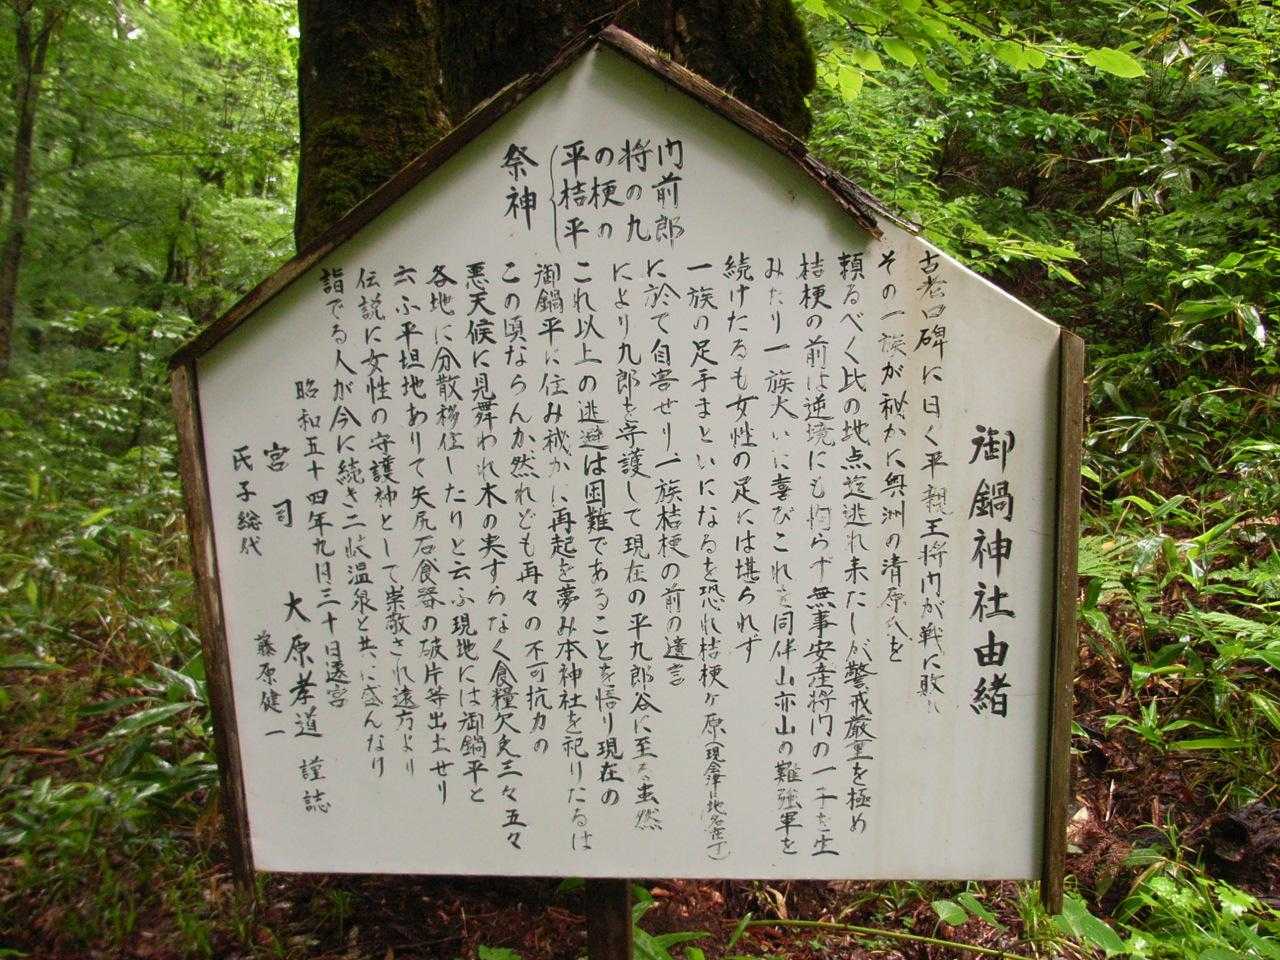 御鍋神社由緒
古老口碑に曰く平親王将門が戦に敗れ
その一族が秘かに奥洲の清原氏を
頼るべく此の地点迄逃れ来たしが警戒厳重を極め
桔梗の前は逆境にも拘らず無事安産将門の一子を生
みたり一族大いに喜びこれを同伴山亦山の難強軍を
続けたるも女性の足には堪られず
一族の足手まといになるを恐れ桔梗ヶ原(現会津に地名在丁)
に於て自害せり一族桔梗の前の遺言
により九郎を守護して現在の平九郎谷に至る然
これ以上の逃避は困難であることを悟り現在の
御鍋平に住み秘かに再起を夢み本神社を祀りたるは
この頃ならんか然れども再々の不可抗力の
悪天候に見舞われ木の実すらなく食糧欠乏三々五々
各地に分散移住したりと云ふ現地には御鍋平と
云ふ平坦地ありて矢尻石食器の破片等出土せり
伝説に女性の守護神として崇敬され遠方より
詣でる人が今に続き二岐温泉と共に盛んなり
昭和五十四年九月三十日遷宮
宮司 大原孝道 謹誌
氏子総代 藤原健一
祭神
平の将門
桔梗の前
平の九郎